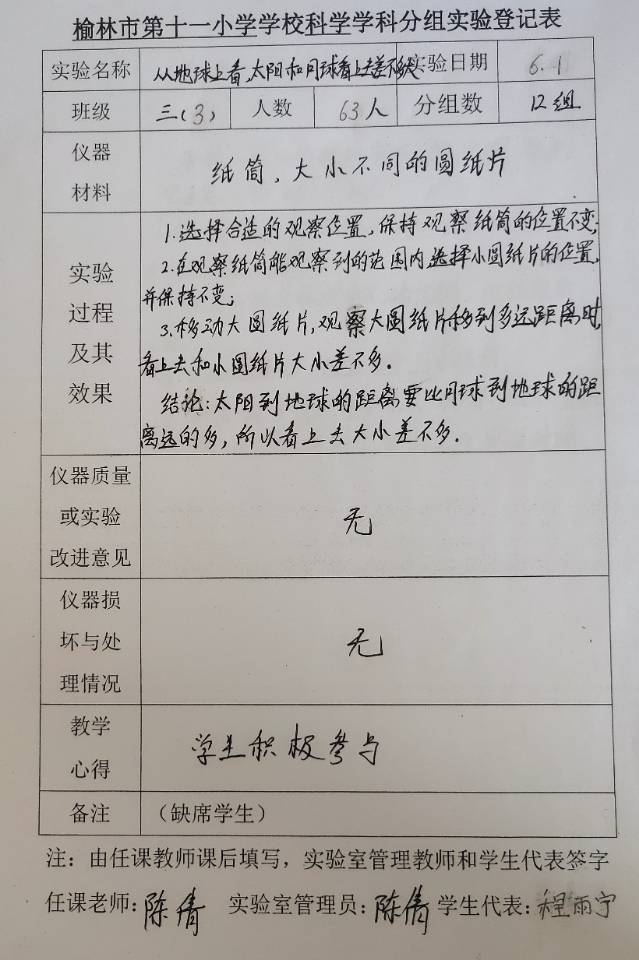 榆林市第十一小学学校科学学科分组实验登记表
实验名称 从地球上看,太阳和月球看上去差不多大 实验日期 6.1
班级 三(3) 人数 63人 分组数 12组
仪器材料 纸筒、大小不同的圆纸片
实验过程及其效果
1.选择合适的观察位置,保持观察纸筒的位置不变;
2.在观察纸筒能观察到的范围内选择小圆纸片的位置,
并保持不变;
3.移动大圆纸片,观察大圆纸片移到多远距离时,
看上去和小圆纸片大小差不多.
结论:太阳到地球的距离要比月球到地球的距
离远的多,所以看上去大小差不多.
仪器质量或实验改进意见 无
仪器损坏与处理情况 无
教学心得 学生积极参与
备注 (缺席学生)
注:由任课教师课后填写,实验室管理教师和学生代表签字
任课老师:陈倩 实验室管理员:陈倩 学生代表:程雨宁